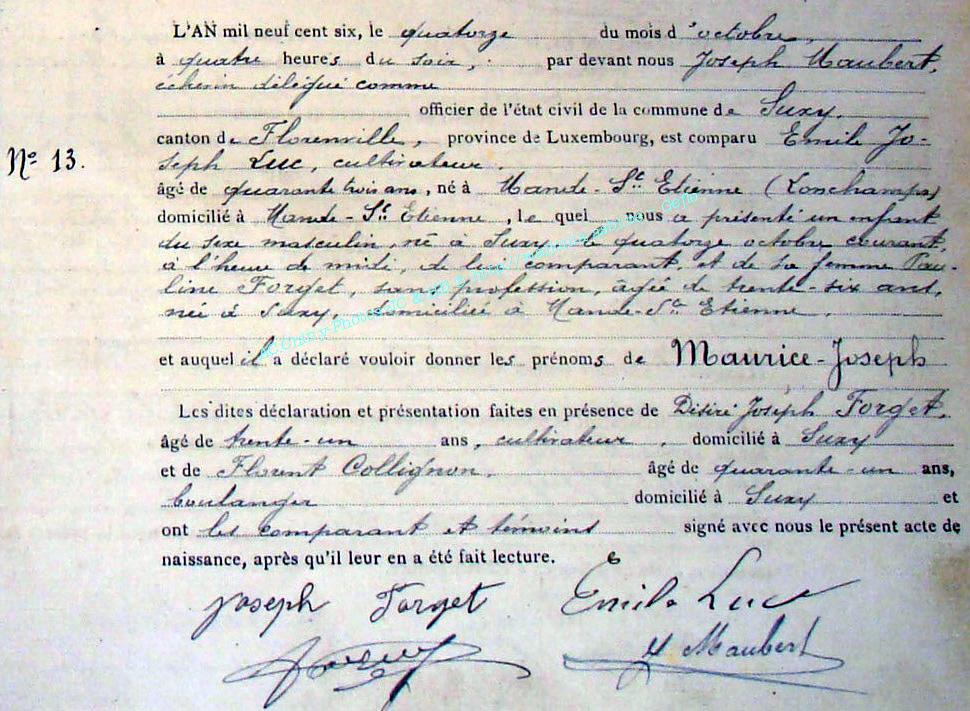 L'AN mil neuf cent six, le quatorze du mois d'octobre,
à quatre heures du soir, par devant nous Joseph Maubert,
échevin délégué comme
officier de l'état civil de la commune de Suxy,
canton de Florenville, province de Luxembourg, est comparu Emile Jo-
Nº 13.
seph Luc, cultivateur,
âgé de quarante trois ans, né à Mande-Ste Etienne (Lonchamps)
domicilié à Mande-St Etienne, le quel nous a présenté un enfant
du sexe masculin, né à Suxy, le quatorze octobre courant,
à l'heure de midi, de lui comparant, et de sa femme Pau-
line Forget, sans profession, âgée de trente-six ans,
née à Suxy, domiciliée à Mande-Ste Etienne,
et auquel il a déclaré vouloir donner les prénoms de Maurice-Joseph
Les dites déclaration et présentation faites en présence de Désiré Joseph Forget,
âgé de trente-un ans, cultivateur, domicilié à Suxy
et de Florent Collignon, âgé de quarante-un ans,
boulanger domicilié à Suxy et
ont les comparant et témoins signé avec nous le présent acte de
naissance, après qu'il leur en a été fait lecture.
Joseph Forget Emile Luc
J Maubert